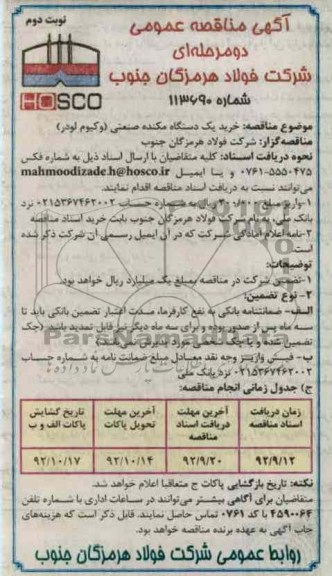 نوبت دوم
آگهی مناقصه عمومی
دومرحله‌ای
شرکت فولاد هرمزگان جنوب
شماره ۱۱۳۶۹۰
HOSCO
موضوع مناقصه: خرید یک دستگاه مکنده صنعتی (وکیوم لودر)
مناقصه‌گزار: شرکت فولاد هرمزگان جنوب
نحوه دریافت اسناد: کلیه متقاضیان با ارسال اسناد ذیل به شماره فکس
۵۵۵۰۴۷۵-۰۷۶۱ و یا ایمیل mahmoodizade.h@hosco.ir
می‌توانند نسبت به دریافت اسناد مناقصه اقدام نمایند.
۱-واریز مبلغ به شماره حساب ۰۲۱۵۳۶۷۴۶۲۰۰۲ نزد
بانک ملی، به نام شرکت فولاد هرمزگان جنوب بابت خرید اسناد مناقصه
۲-نامه اعلام آمادگی شرکت که در آن ایمیل رسمی آن شرکت ذکر شده
است.
توضیحات:
۱-تضمین شرکت در مناقصه بمبلغ یک میلیارد ریال خواهد بود.
۲- نوع تضمین:
الف- ضمانتنامه بانکی به نفع کارفرما، مدت اعتبار تضمین بانکی باید تا
سه ماه پس از صدور بوده و برای سه ماه دیگر نیز قابل تمدید باشد (چک
تضمین شده و یا چک
ب- فیش واریز وجه نقد معادل مبلغ ضمانت نامه به شماره حساب
۰۲۱۵۳۶۷۴۶۲۰۰۲ نزد بانک ملی
ج) جدول زمانی انجام مناقصه:
زمان دریافت اسناد مناقصه
آخرین مهلت دریافت اسناد مناقصه
آخرین مهلت تحویل پاکات
تاریخ گشایش پاکات الف و ب
۹۲/۹/۱۲ ۹۲/۹/۲۰ ۹۲/۱۰/۱۴ ۹۲/۱۰/۱۷
نکته: تاریخ بازگشایی پاکات ج متعاقبا اعلام خواهد شد.
متقاضیان برای آگاهی بیشتر می‌توانند در ساعات اداری با شماره تلفن
۴۵۹۰۰۶۴ با کد ۰۷۶۱ تماس حاصل نمایند. قابل ذکر است که هزینه‌های
چاپ آگهی به عهده برنده مناقصه خواهد بود.
روابط عمومی شرکت فولاد هرمزگان جنوب